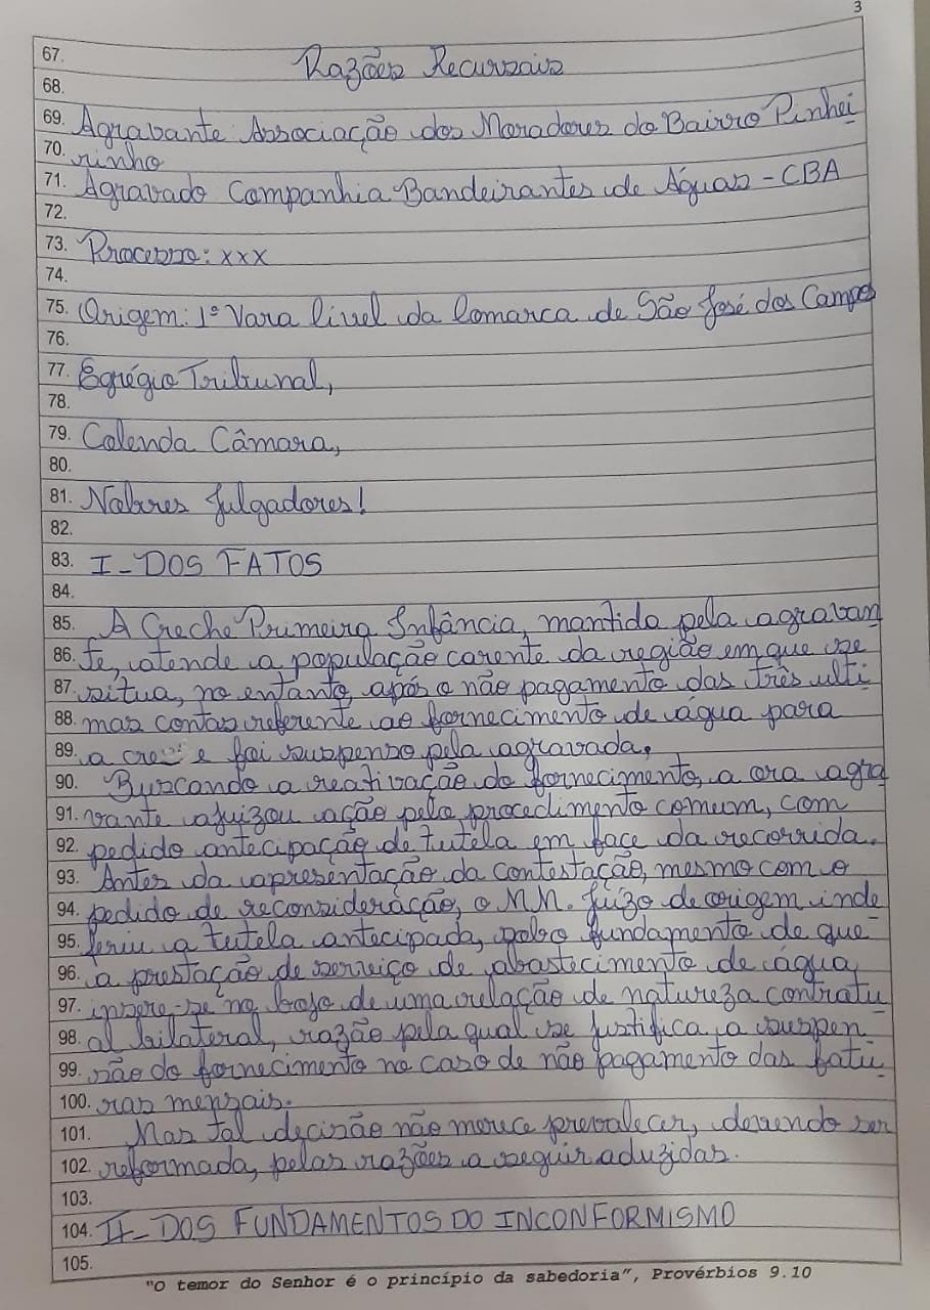 3
67. Razões Recursais
68.
69. Agravante Associação dos Moradores do Bairro Pinhei
70. rinho
71. Agravado Companhia Bandeirantes de Águas - CBA
72.
73. Processo: xxx
74.
75. Origem: 1º Vara Cível da Comarca de São José dos Campos
76.
77. Egrégio Tribunal,
78.
79. Colenda Câmara,
80.
81. Nobres Julgadores!
82.
83. I - DOS FATOS
84.
85. A Creche Primeira Infância, mantida pela agravan
86. te, atende a população carente da região em que se
87. situa, no entanto, após o não pagamento das três ulti
88. mas contas referente ao fornecimento de água para
89. a e foi suspenso pela agravada.
90. Buscando a reativação do fornecimento, a ora agra
91. vante ajuizou ação pelo procedimento comum, com
92. pedido antecipação de tutela em face da recorrida.
93. Antes da apresentação da contestação, mesmo com o
94. pedido de reconsideração, o M.M. Juízo de origem inde
95. feriu a tutela antecipada, sobo fundamento de que
96. a prestação de serviço de abastecimento de água,
97. insere-se no bojo de uma relação de natureza contratu
98. al bilateral, razão pela qual se justifica a suspen
99. são do fornecimento no caso de não pagamento das fatu
100. ras mensais.
101. Mas tal decisão não merece prevalecer, devendo ser
102. reformada, pelas razões a seguir aduzidas.
103.
104. II - DOS FUNDAMENTOS DO INCONFORMISMO
105.
"O temor do Senhor é o princípio da sabedoria", Provérbios 9.10